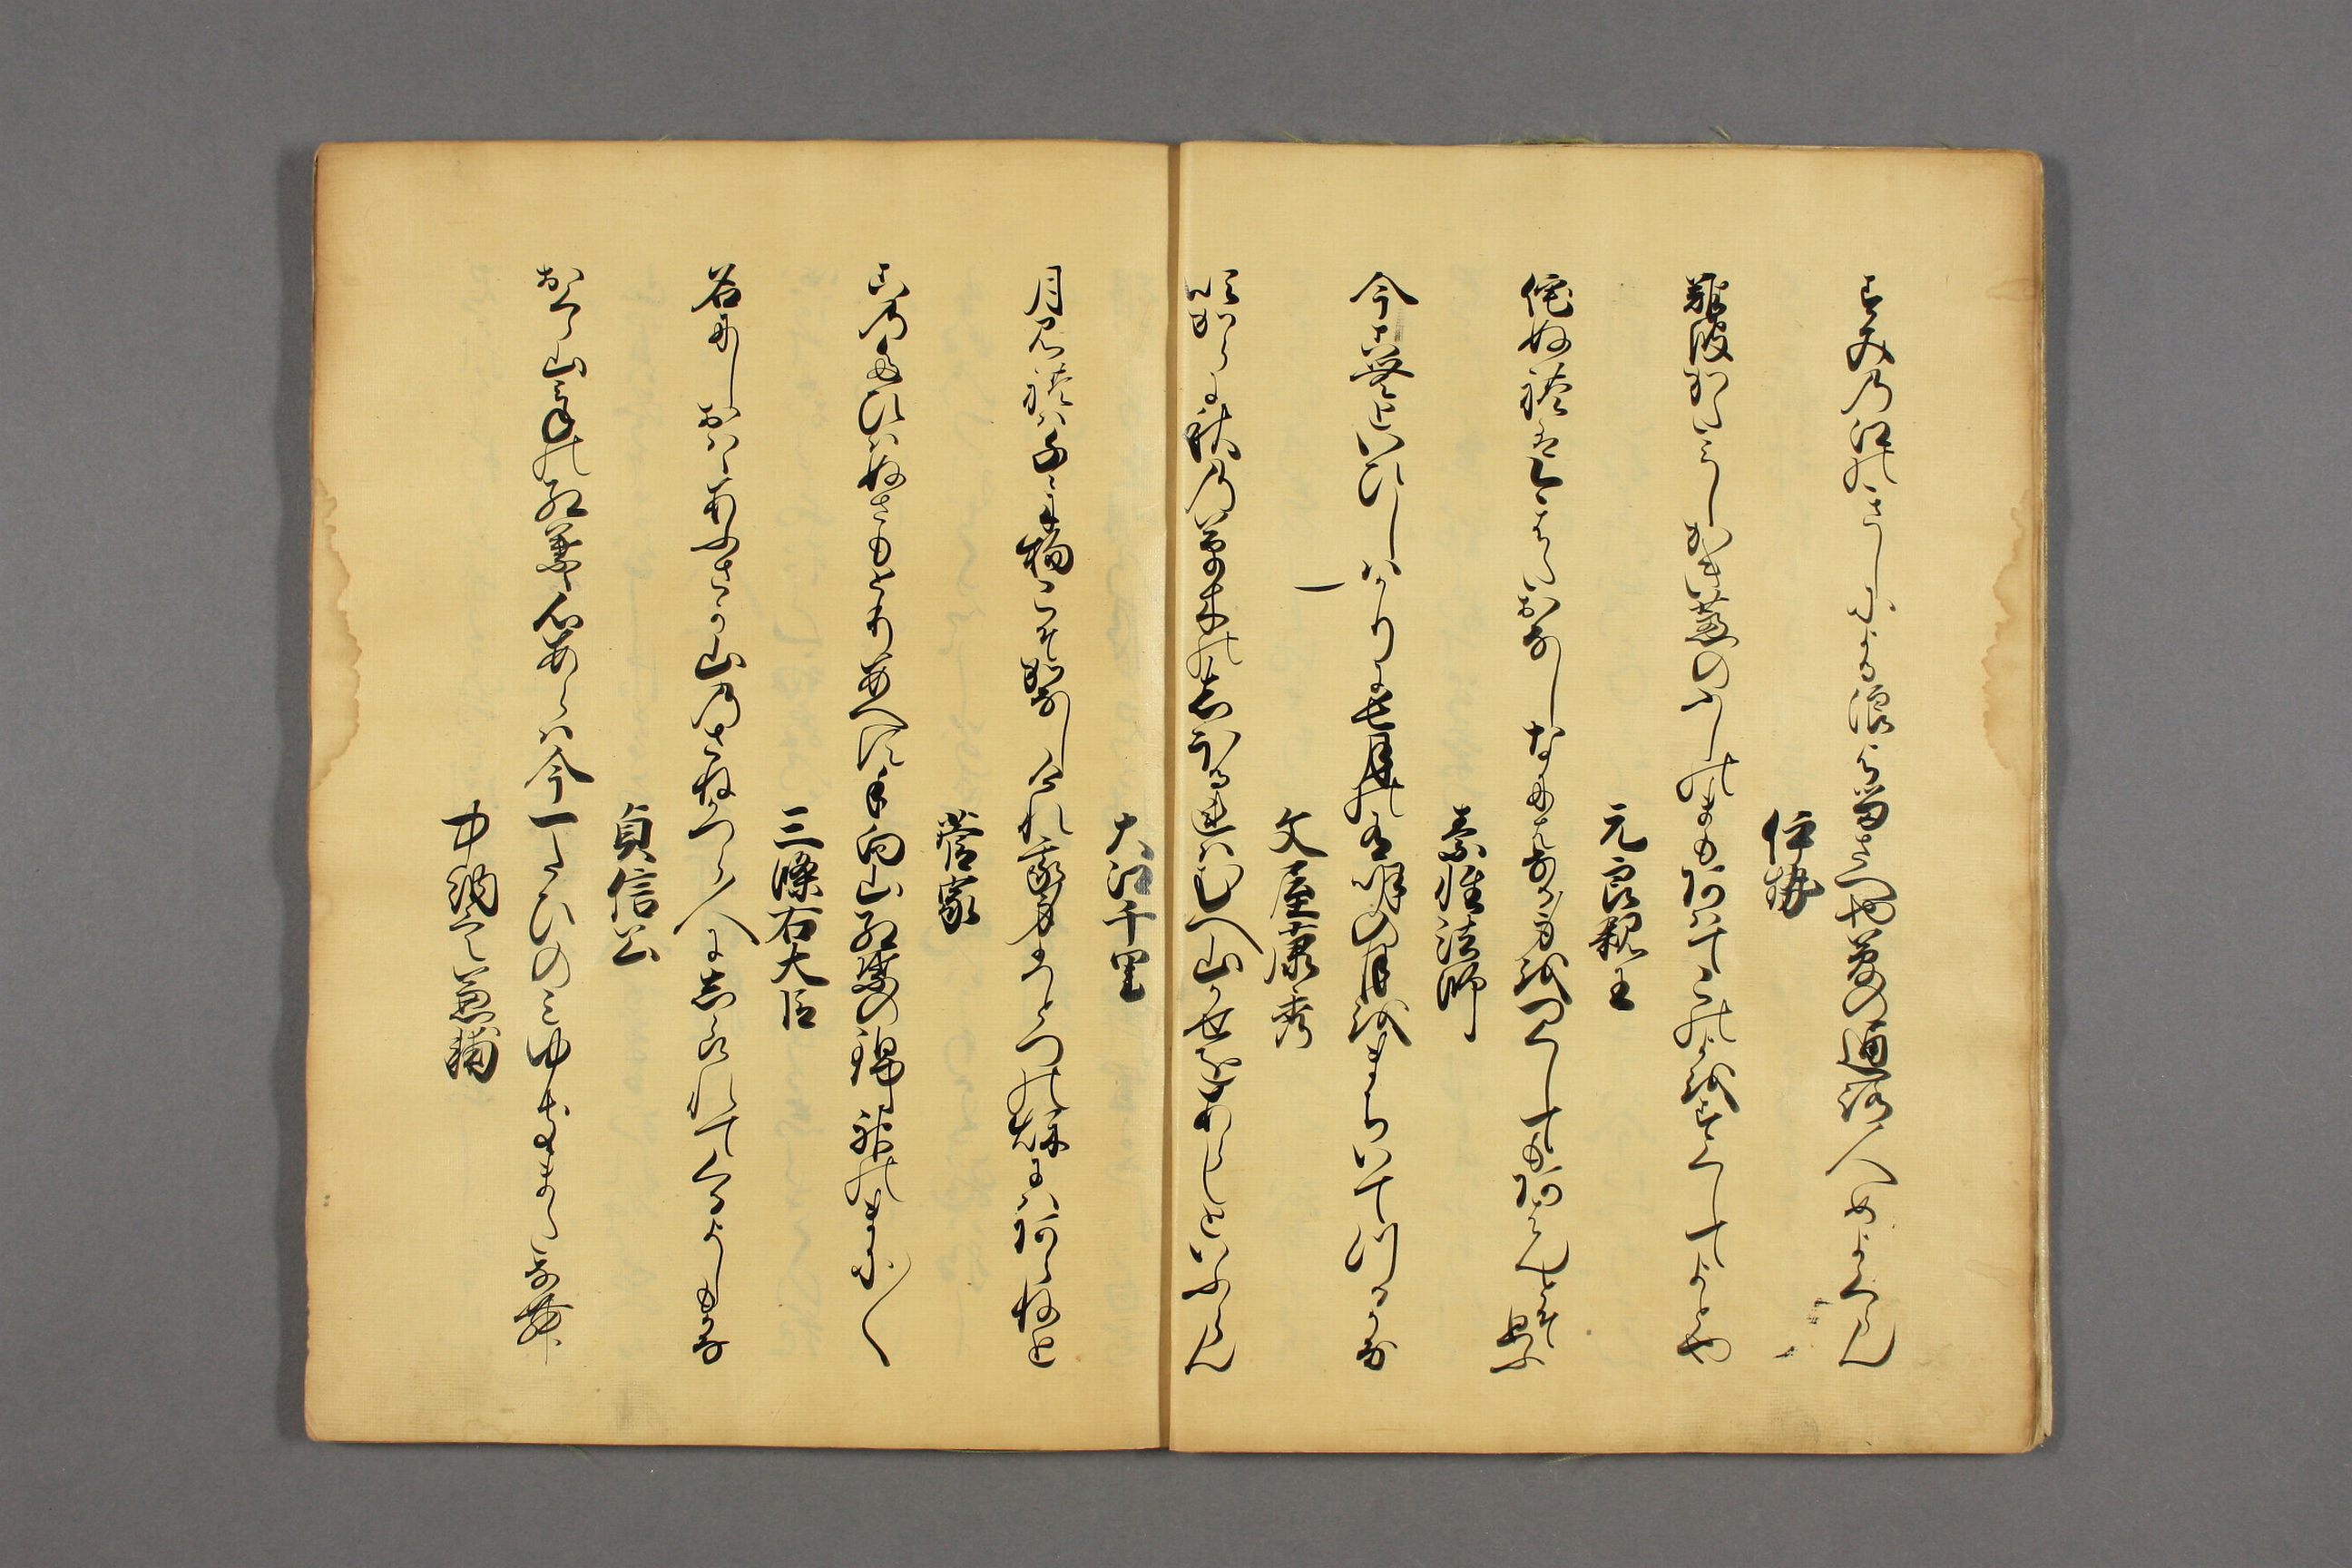 すみの江のきしによる浪よるさへや夢の通路人めよくらん
伊勢
難波かたみしかき蘆のふしのまもあはてこの世を過くしてよとや
元良親王
侘ぬれは今はたおなしなにはなる身をつくしてもあはんとそ思ふ
素性法師
今こむといひしはかりに長月の有明の月をまちいてつるかな
文屋康秀
吹からに秋の草木のしほるれはむへ山かせをあらしといふらん
大江千里
月見れは千々に物こそかなしけれ我身ひとつの秋にはあらねと
菅家
このたひはぬさもとりあへす手向山紅葉の錦神のまに〱
三條右大臣
名にしおはゝあふさか山のさねかつら人にしられてくるよしもかな
貞信公
おくら山峯の紅葉々心あらは今一たひのみゆきまたなむ
中納言兼輔